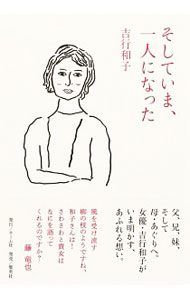 そしていま、
一人になった
吉行和子
父、兄、妹、
そして
母・あぐりへ。
女優・吉行和子が
いま明かす、
あふれる想い。
風を受け流す
柳の枝のようですね、
和子さんは！
さわさわと貴女は
なにを語って
くれるのですか？
藤 竜也
発行：ホーム社 発売：集英社